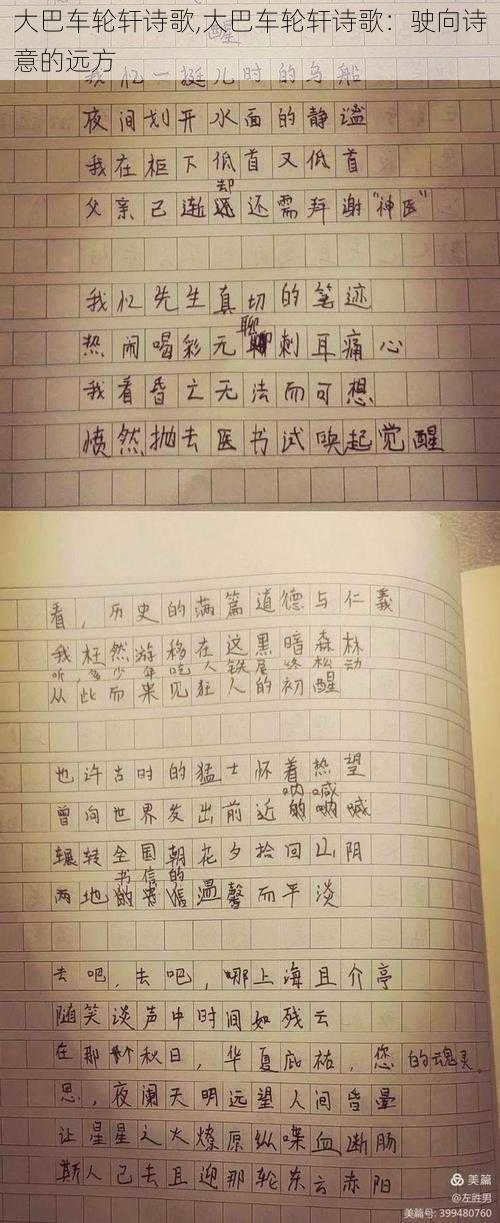 大巴车轮轩诗歌,大巴车轮轩诗歌：驶向诗
意的远方
醒
我忆一挺儿时的乌船
夜间划开水面的静谧
我在柜下低首又低首
却
父亲已渐还需拜谢“神医”
我忆先生真切的笔迹
聊
热闹喝彩无刺耳痛心
我看昏亡无法而可想
愤然抛去医书试唤起觉醒
看，历史的满篇道德与仁義
我枉然游移在这黑暗森林
听，多少年吃人铁屋终松动
从此而来见狂人的初醒
也许古时的猛士怀着热望
呐喊
曾向世界发出前近的呐喊
辗转全国朝花夕拾回山阴
书信的
两地的温馨而平淡
去吧，去吧，哪上海且介亭
随笑谈声中时间如残云
在那个秋日，华夏庇祐，您的魂灵。
思，夜阑天明远望人间昏晕
让星星之火燎原纵喋血断肠
斯人已去且迎那轮东云赤阳
美篇
@左胜男
美篇号: 399480760